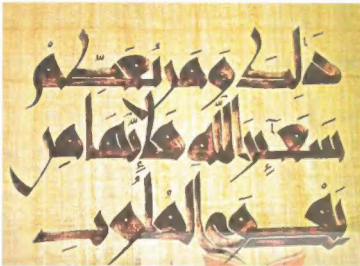 ذَٰلِكَ وَمَن يُعَظِّمْ
شَعَٰٓئِرَ اللَّهِ فَإِنَّهَا مِن
تَقْوَى الْقُلُوبِ